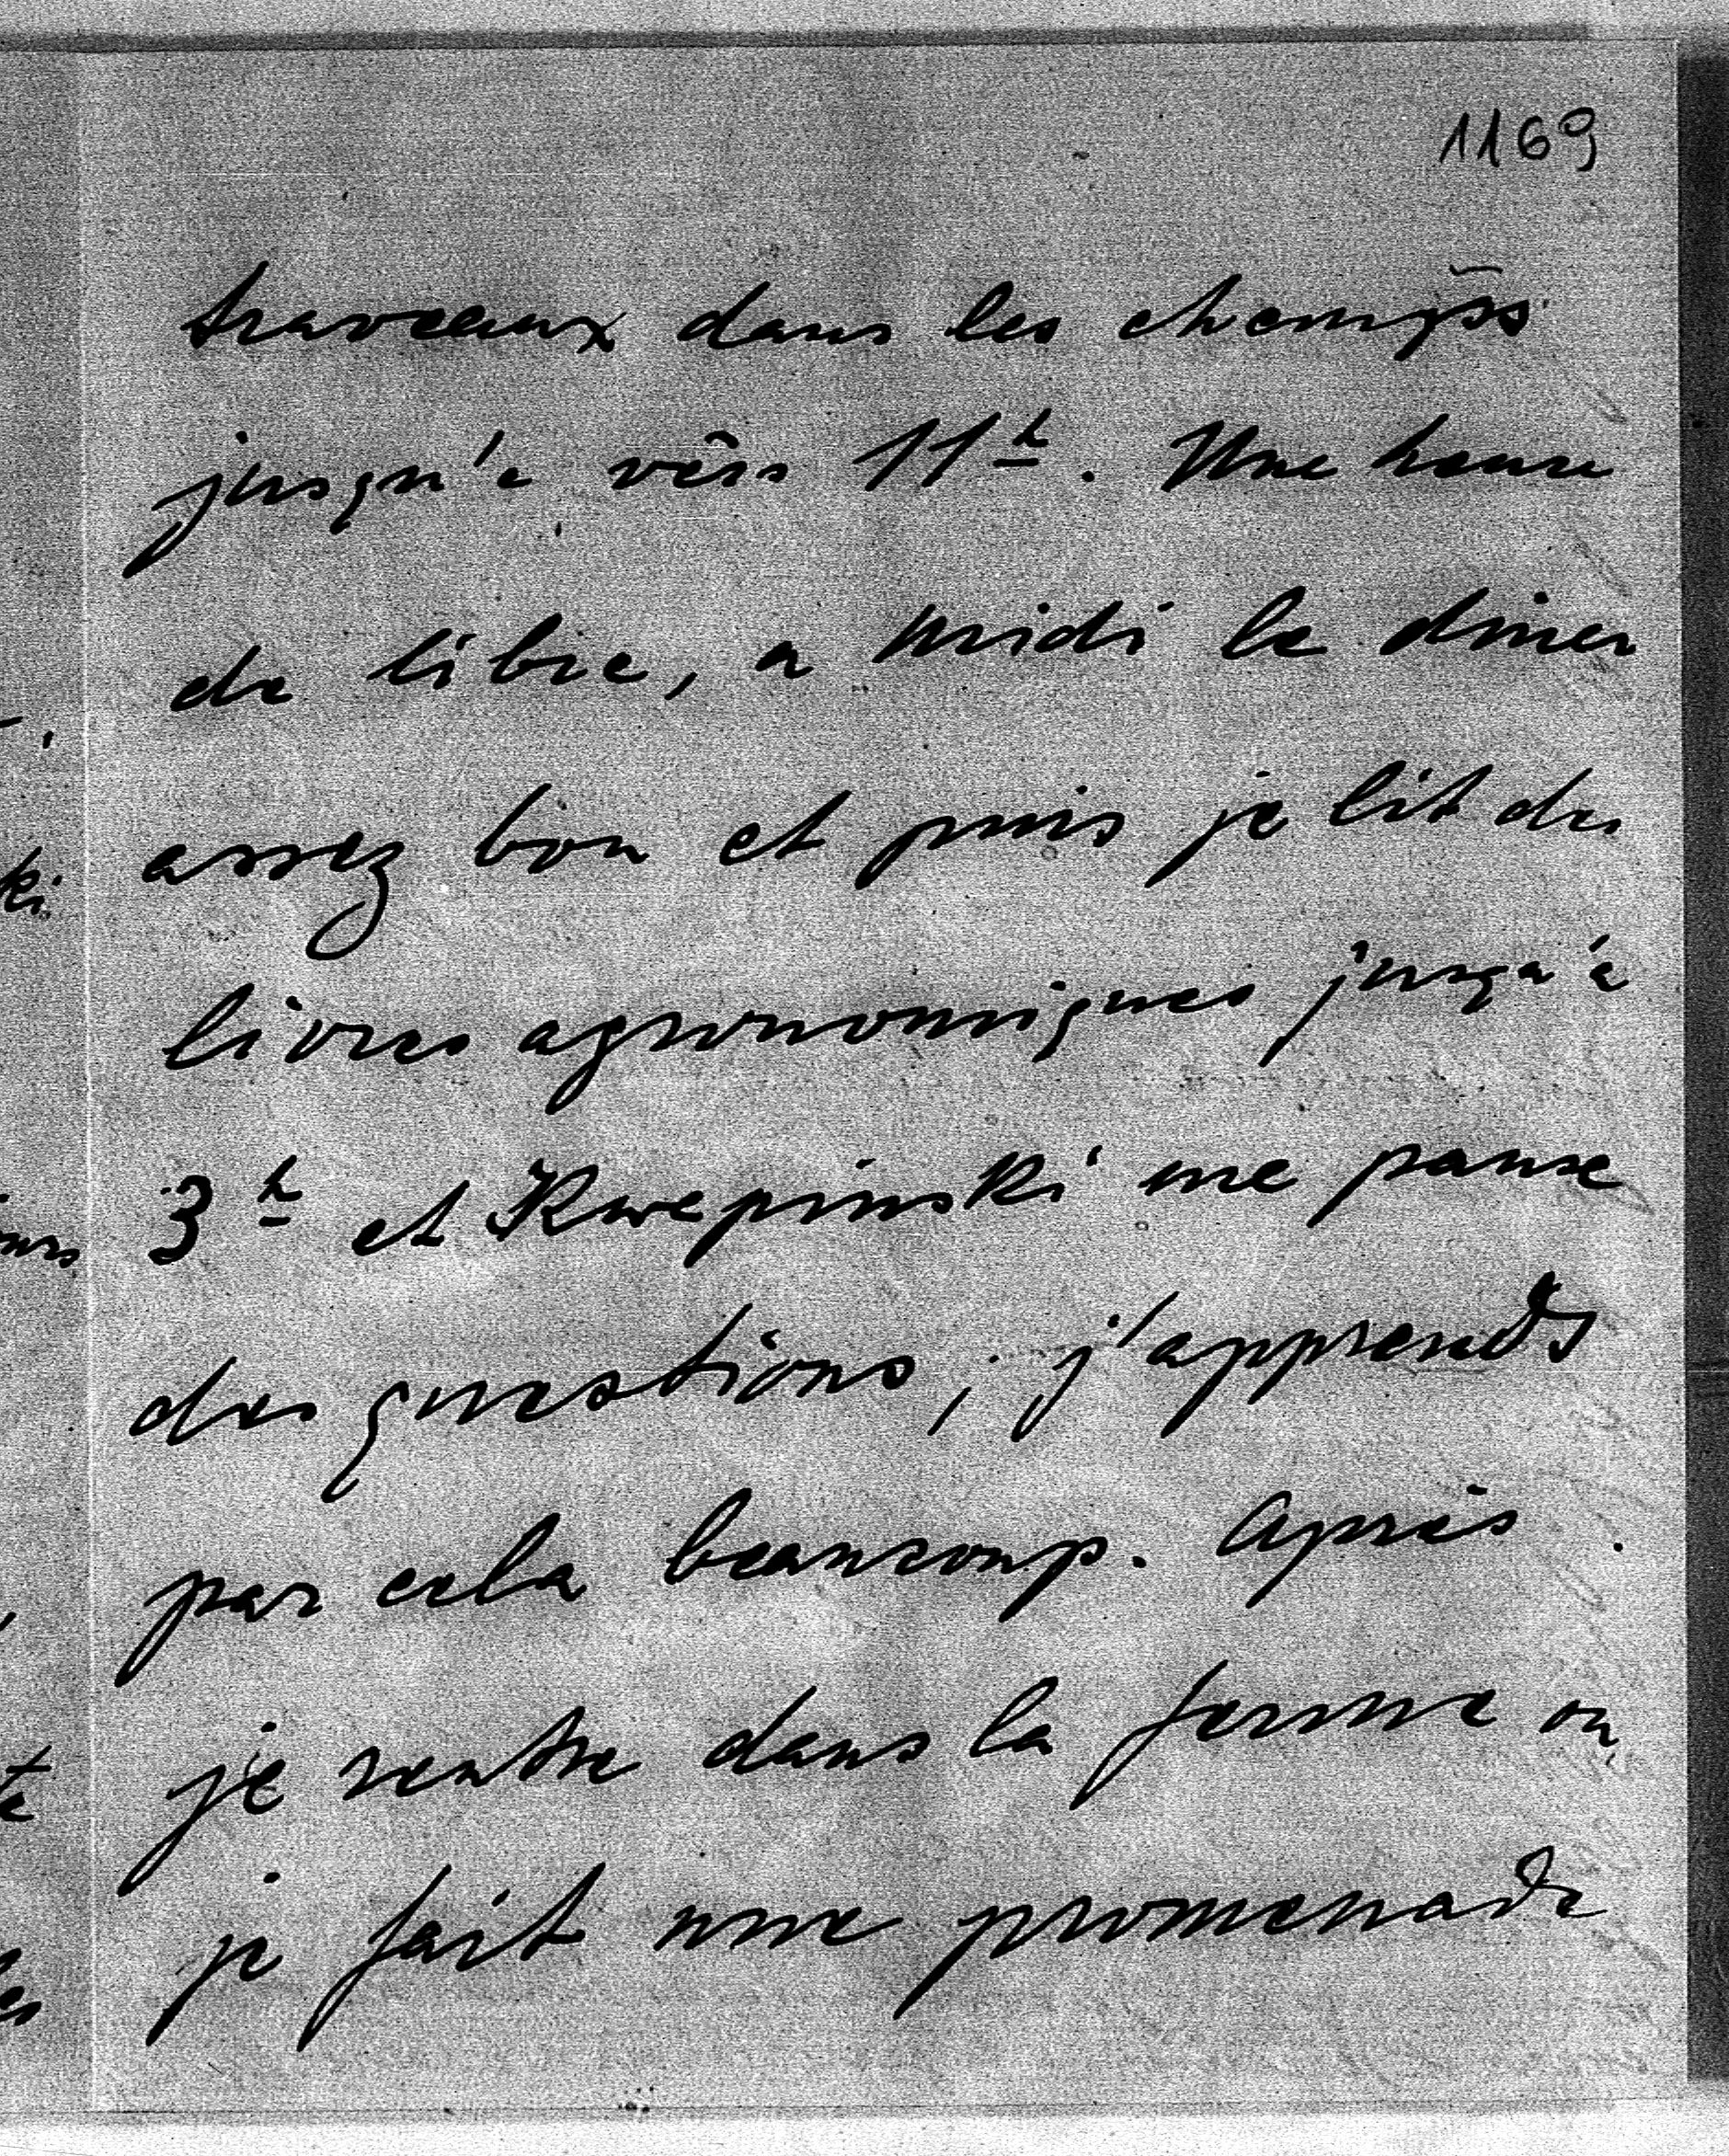 1169
travaux dans les champs
jusqu'a vêrs 11h. Une heure
de libre, a midi le diner
assez bon et puis je lit des
livres agronomiques jusqu'à
3h et Kwepinski me pause
des questions, j'apprends
par cela beaucoup. Après
je rentre dans la ferme ou
je fait une promenade